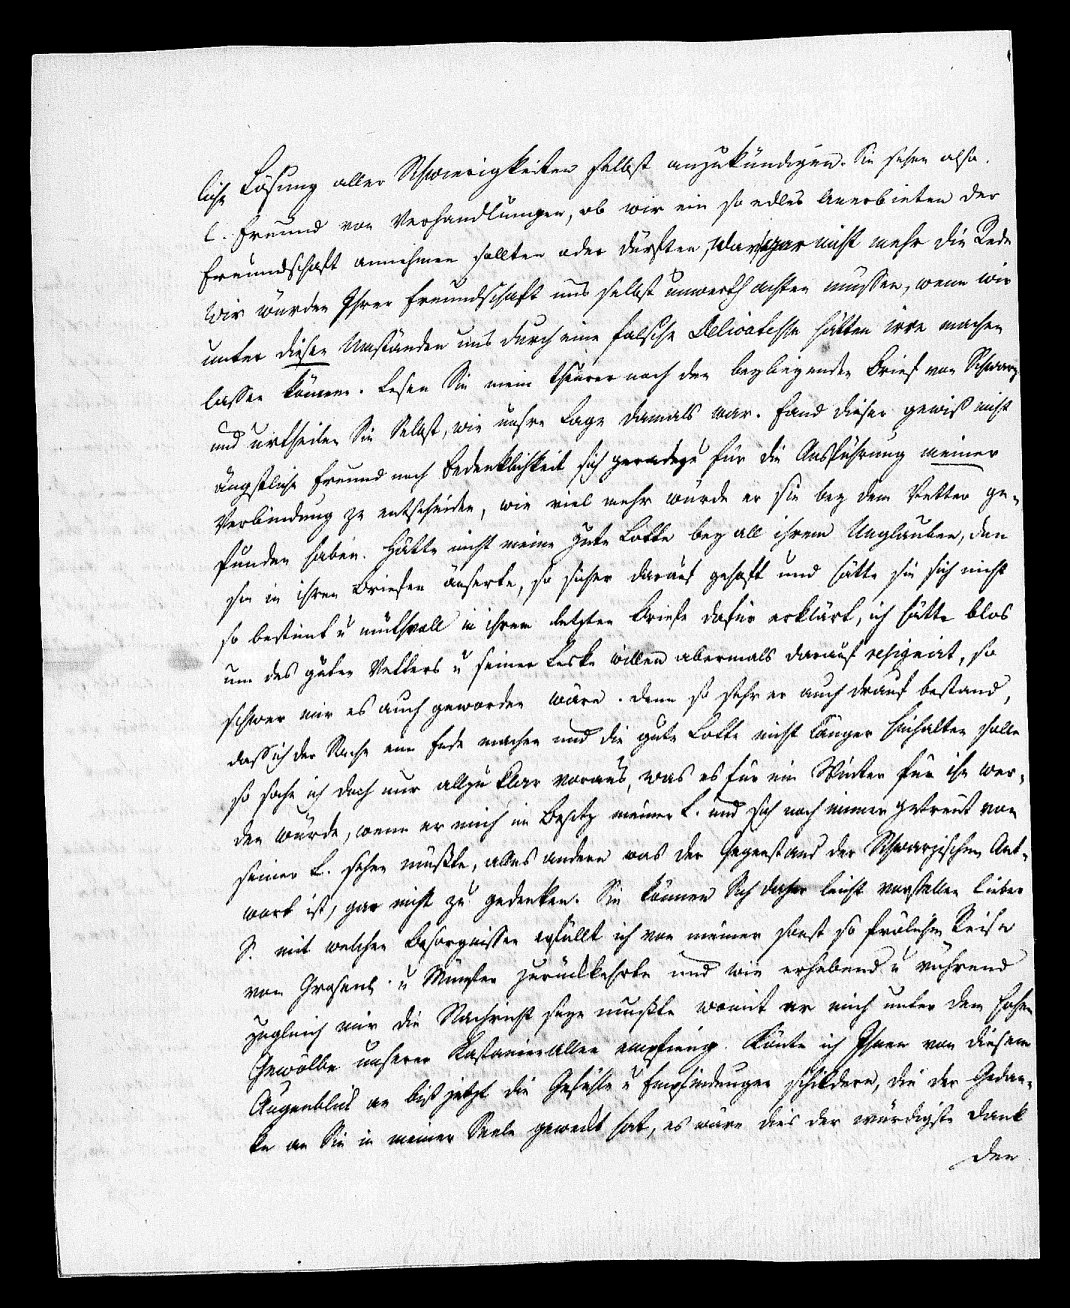 liche Lösung aller Schwierigkeiten selbst anzukündigen. Sie sehen also
l. Freund von Verhandlungen, ob wir ein so edles Anerbieten der
Freundschaft annehmen sollten oder dürften, war gar nicht mehr die Rede
Wir würden Ihrer Freundschaft uns selbst unwerth achten müssen, wenn wir
unter diesen Umständen uns durch eine falsche Delicatesse hätten irre machen
lassen können. Lesen Sie mein theurer noch den beyliegenden Brief von Schwarz
und urtheilen Sie Selbst, wie unsre Lage damals war. Fand dieser gewiß nicht
ängstliche Freund noch Bedenklichkeit sich geradezu für die Ausführung meiner
Verbindung zu entscheiden, wie viel mehr würde er sie bey dem Vetter ge-
funden haben. Hätte nicht meine gute Lotte bey all ihrem Unglauben, den
sie in ihren Briefen äuserte, so sicher darauf gehoft und hätte sie sich nicht
so bestimt u muthvoll in ihrem letzten Briefe dafür erklärt, ich hätte blos
um des guten Vetters u seiner Leske willen abermals darauf resignirt, so
schwer mir es auch geworden wäre. Denn so sehr er auch drauf bestand,
daß ich der Sache ein Ende machen und die gute Lotte nicht länger hinhalten solle
so sahe ich doch nur allzu klar voraus, was es für ein Winter für ihn wer-
den würde, wenn er mich im Besitz meiner L. und sich noch immer getrent von
seiner L. sehen müßte, alles andere was der Gegenstand der Schwarzischen Ant-
wort ist, gar nicht zu gedenken. Sie können Sich daher leicht vorstellen lieber
S. mit welchen Besorgnissen erfüllt ich von meiner sonst so frölichen Reise
von u Münster zurückkehrte und wie erhebend u rührend
zugleich mir die Nachricht seyn mußte womit er mich unter dem hohen
Gewölbe unserer Kastanienallee empfieng. Könte ich Ihnen von diesem
Augenblick an bis jetzt die Gefühle u Empfindungen schildern, die der Gedan-
ke an Sie in meiner Seele geweckt hat, es wäre dies der würdigste Dank
den